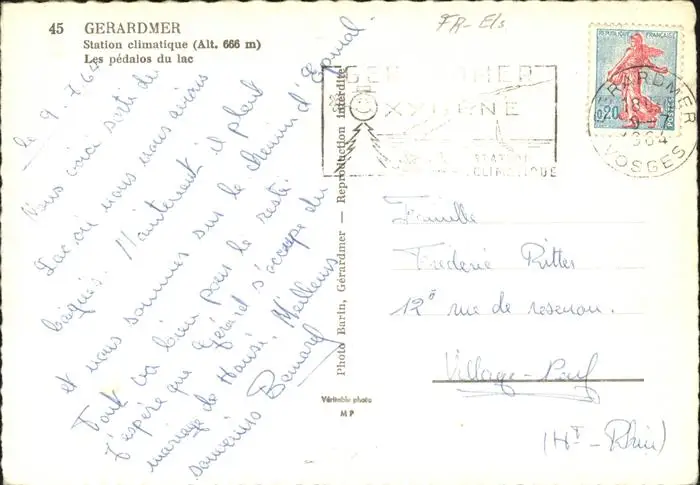 45 GERARDMER
Station climatique (Alt. 666 m)
Les pédalos du lac
FR-Els
le 9.7.64
Nous voici sorti du
Lac, où nous nous avions
baignés. Maintenant il pleut
et nous sommes sur le chemin d'Epinal.
Tout va bien pour le reste.
J'espère que Gérard s'occupe du
mariage de Hansi. Meilleurs
souvenirs Bernard
Photo Barin, Gérardmer — Reproduction interdite
Véritable photo
M P
GERARDMER
OXYGENE
STATION
CLIMATIQUE
REPUBLIQUE FRANÇAISE
0,20
GERARDMER
18
9-7
1964
VOSGES
Famille
Frédéric Ritter
12 rue de
Village-Neuf
(Ht-Rhin)